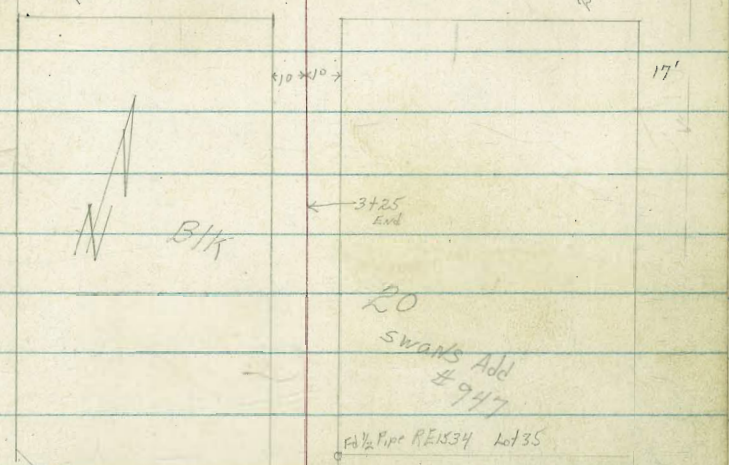 10 10
17'
3+25
End
N
Blk
20
Swans Add
# 947
Fd 1/2 Pipe RE1534 Lot 35